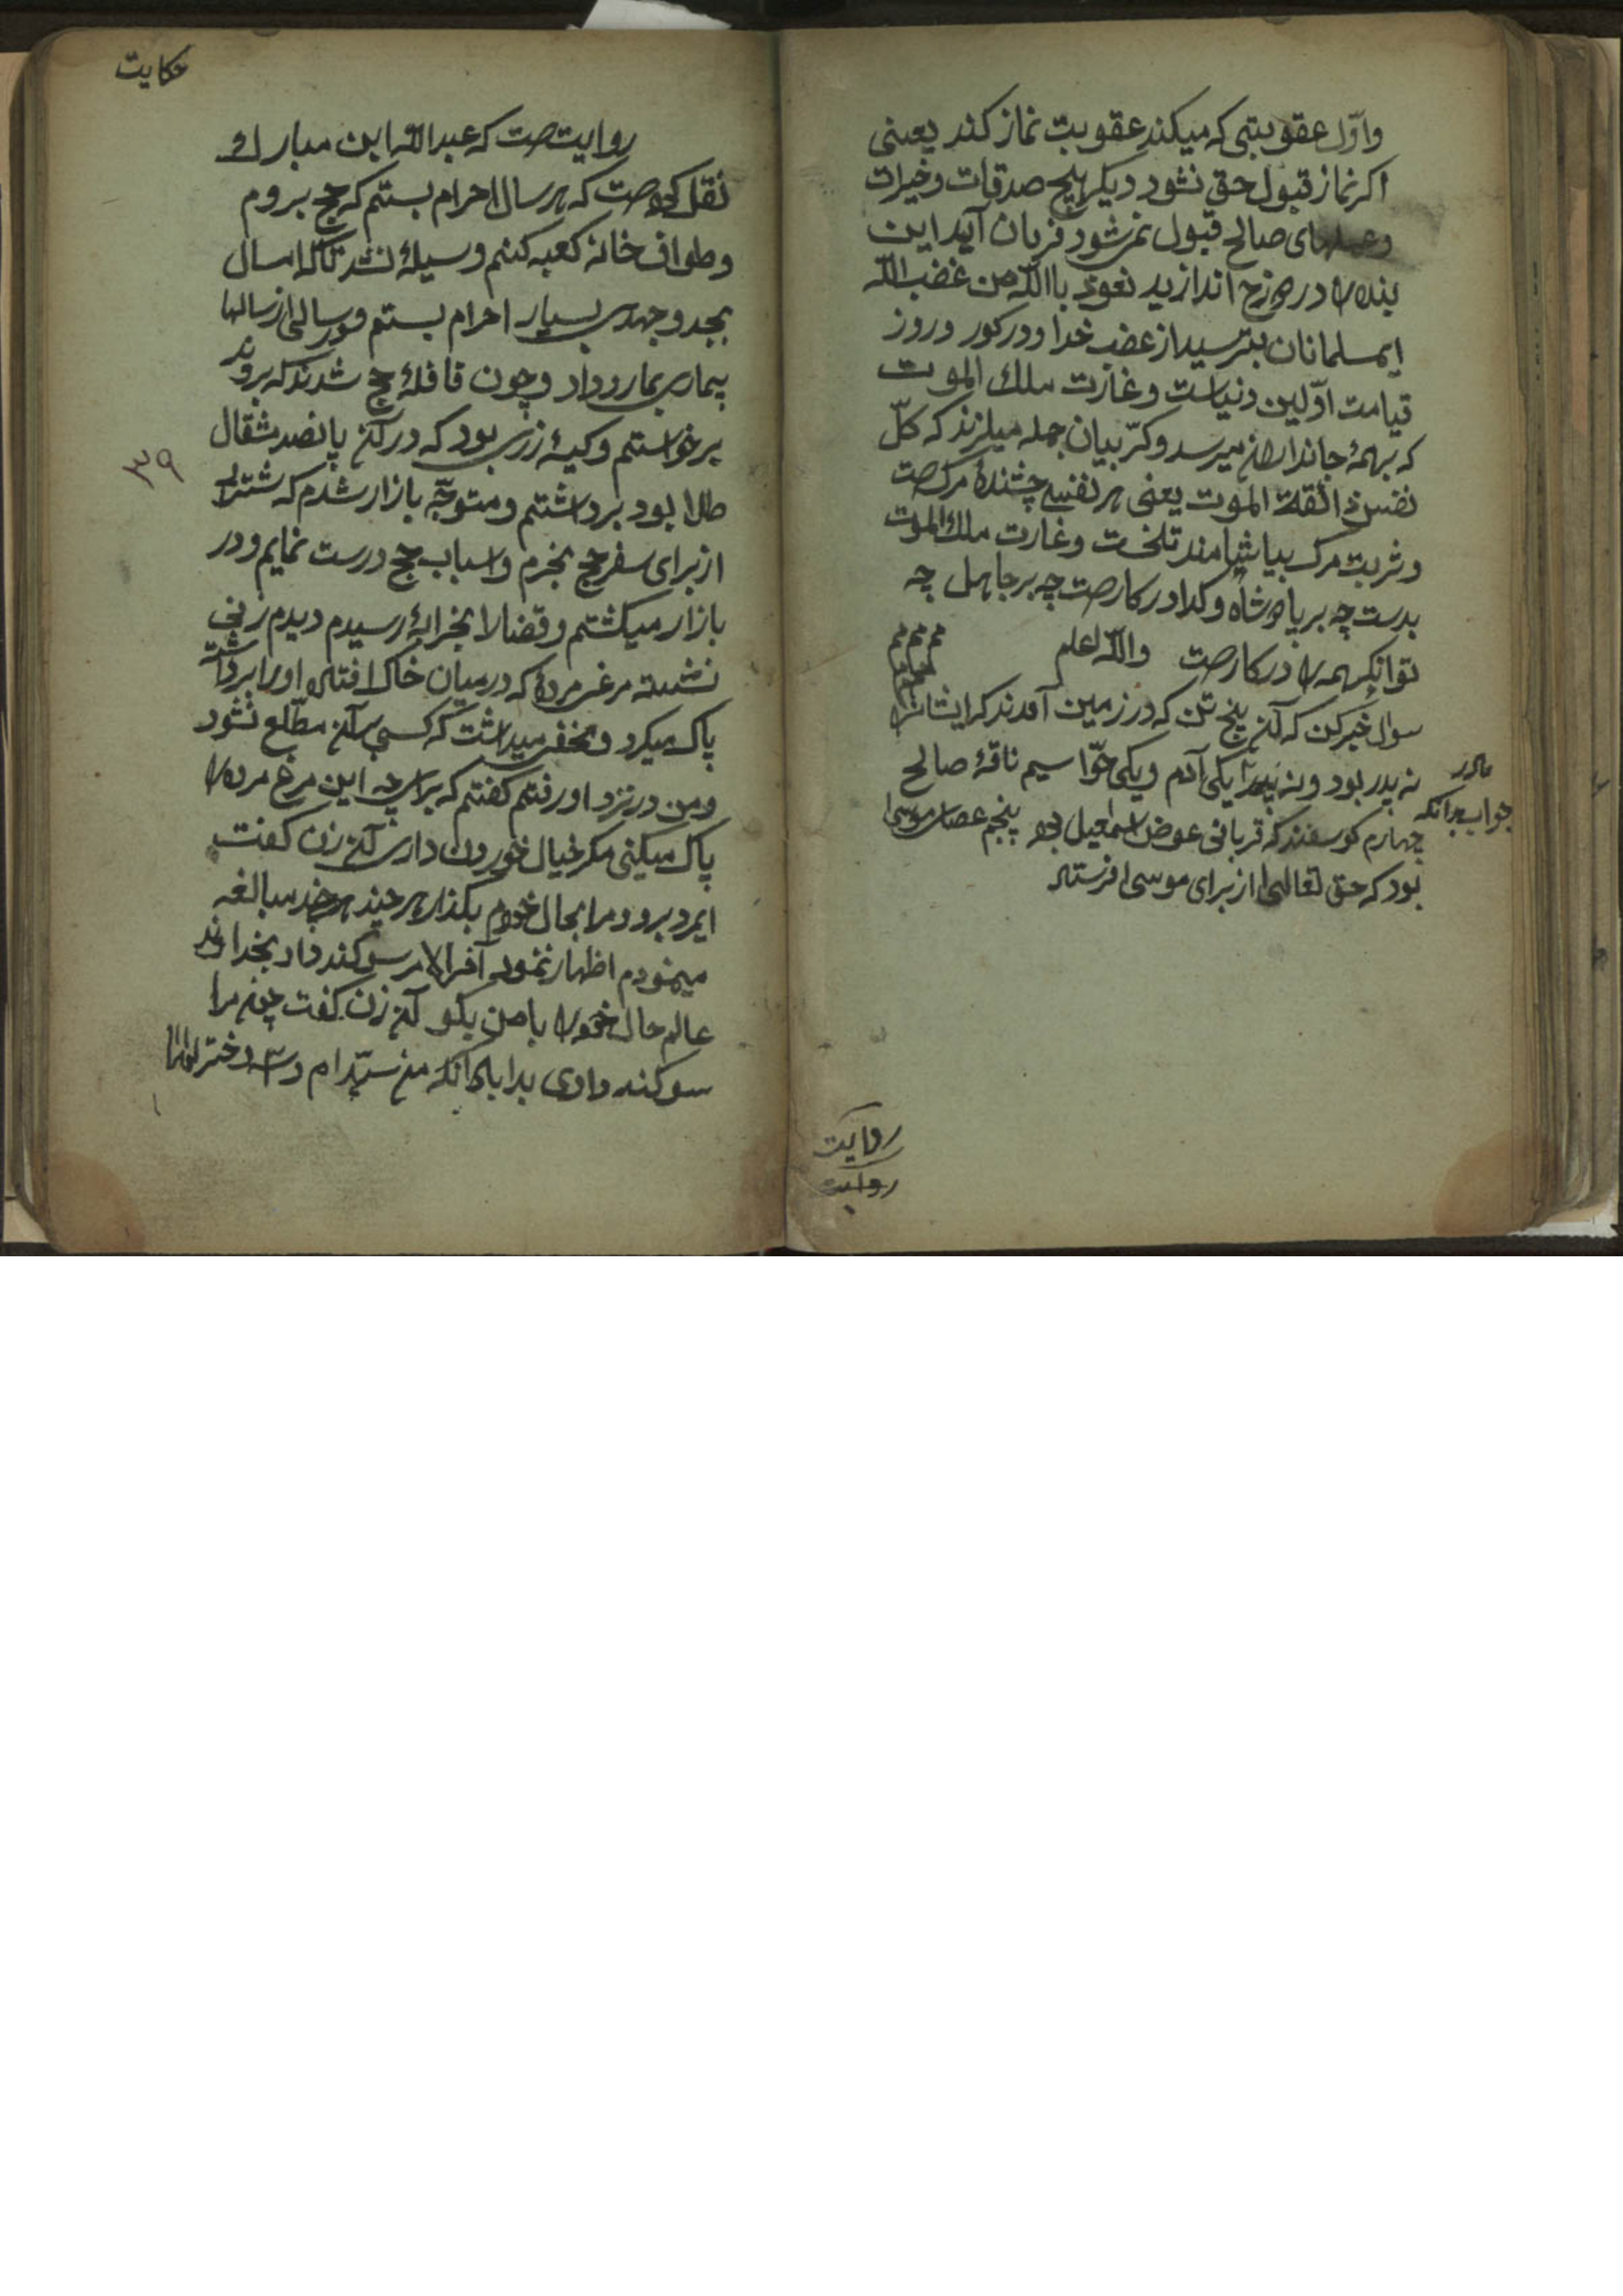 واوّل عقوبتی که میکند عقوبت نماز کند یعنی
اکر نماز قبول حق نشود دیکر هیچ صدقات وخیرات
وعملهای صالح قبول نمیشود فرمان آید این
بنده را در دوزخ اندازید نعوذ باالله من غضب الله
ایمسلمانان بترسید از غضب خدا ودر کور وروز
قیامت اوّلین دنیاست وغارت ملك الموت
که بهمهٔ جانداران میرسد وکرّبیان جمله میلرزند که کلّ
نفس ذائقة الموت یعنی هر نفسی چشندهٔ مرکست
وشربت مرک بیاشامند تلخست وغارت ملك الموت
بدرست چه بر پادشاه وکدا در کارست چه بر جاهل چه
توانکر همه را در کارست والله اعلم
سوال خبر کن که آن پنج تن که در زمین آمدند که ایشانرا
نه پدر بود ونه مادر یکی آدم ویکی حوّا سیم ناقهٔ صالح
مادر
جواب بدانکه
چهارم کوسفند که قربانی عوض اسمعیل بود پنجم عصای موسی
بود که حق تعالی از برای موسی فرستاد
روایت
روایت
حکایت
روایتست که عبدالله ابن مبارك
نقل کردست که هر سال احرام بستم که حج بروم
وطواف خانه کعبه کنم وسیلهٔ نشد تاآنکه امسال
بجد وجهدی بسیار احرام بستم ودر سالی از سالها
بیماری بما رو داد وچون قافلهٔ حج شدند که بروند
برخواستم وکیسهٔ زری بود که در آن پانصد مثقال
طلا بود برداشتم ومتوجّه بازار شدم که شتری
۳۹
از برای سفر حج بخرم واسباب حج درست نمایم ودر
بازار میکشتم وقضارا بخرابهٔ رسیدم دیدم زنی
نشسته مرغ مردهٔ که در میان خاک افتاده اورا برداشته
پاک میکرد ومخفی میداشت که کسی بر آن مطّلع نشود
ومن در نزد او رفتم کفتم که برای چه این مرغ مرده را
پاک میکنی مکر خیال خوردن داری آن زن کفت
ایمرد برو ومرا بحال خودم بکذار هر چند هر چند مبالغه
مینمودم اظهار ننمود آخر الامر سوکند داد بخداوند
عالم حال خود را با من بکو آن زن کفت چون مرا
سوکند دادی بدان وآکاه من سیّدام وسه دختر